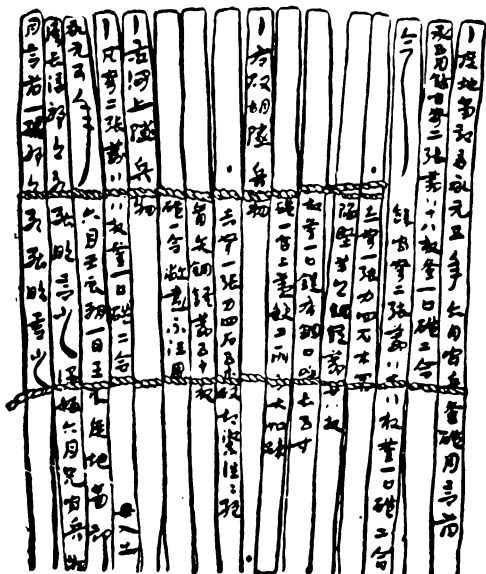 廣地南部言永元五年六月官兵釜磑月言簿
承五月餘官弩二張箭八十八枚釜一口磑二合
今餘官弩二張箭八十八枚釜一口磑二合
赤弩一張力四石木關
陷堅羊頭銅鍭箭卅八枚
故釜一口鍉有錮口呼長五寸
磑一合上蓋缺二所各大如
右破胡隧兵物
赤弩一張力四石五木破起繳往往絕
盲矢銅鍭箭五十枚
磑一合敝盡不任用
右澗上隧兵物
凡弩二張箭八十八枚釜一口磑二合 毋入出
永元五年六月壬辰朔一日壬辰廣地南部
候長信叩頭死罪敢言之謹移六月見官兵物
月言簿一編叩頭死罪敢言之